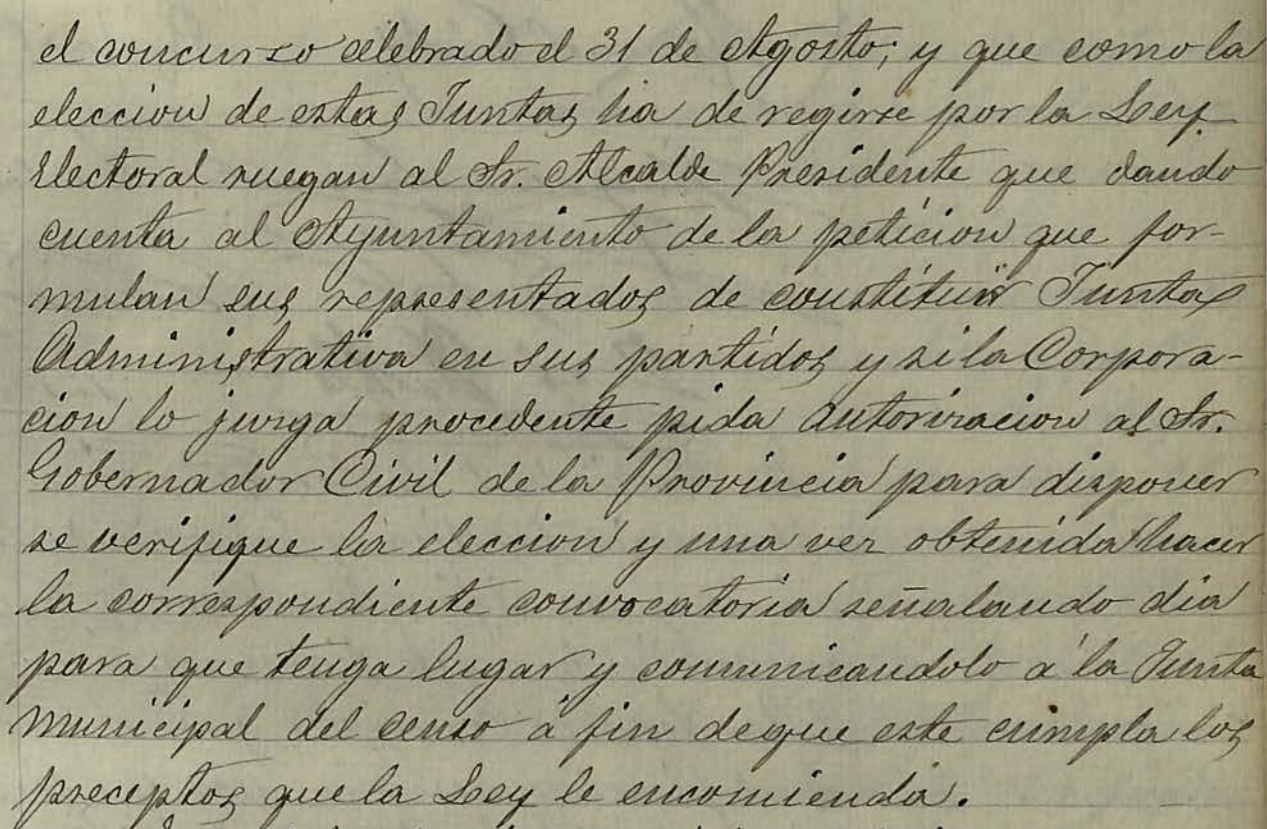 el concurso celebrado el 31 de Agosto; y que como la
eleccion de estas Juntas ha de regirse por la Ley
Electoral ruegan al Sr. Alcalde Presidente que dando
cuenta al Ayuntamiento de la peticion que for-
mulan sus representados de constituir Junta
Administrativa en sus partidos y si la Corpora-
cion lo juzga procedente pida autorizacion al Sr.
Gobernador Civil de la Provincia para disponer
se verifique la eleccion y una vez obtenida hacer
la correspondiente convocatoria señalando dia
para que tenga lugar y comunicandolo á la Junta
Municipal del Censo á fin de que este cumpla los
preceptos que la Ley le encomienda.